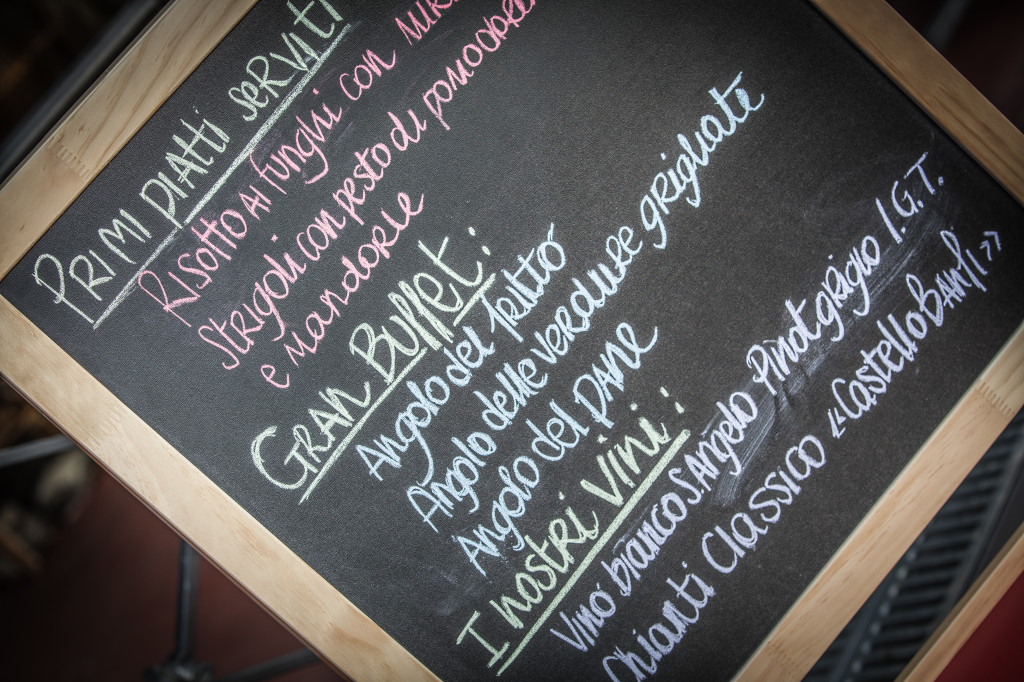 PRIMI PIATTI SERVITI
RISOTTO AI FUNGHI CON
STRIGOLI CON PESTO DI
E MANDORLE
GRAN BUFFET:
ANGOLO DEL FRITTO
ANGOLO DELLE VERDURE GRIGLIATE
ANGOLO DEL PANE
I NOSTRI VINI:
VINO BIANCO S.ANGELO PINOT GRIGIO I.G.T.
CHIANTI CLASSICO «CASTELLO BANFI»